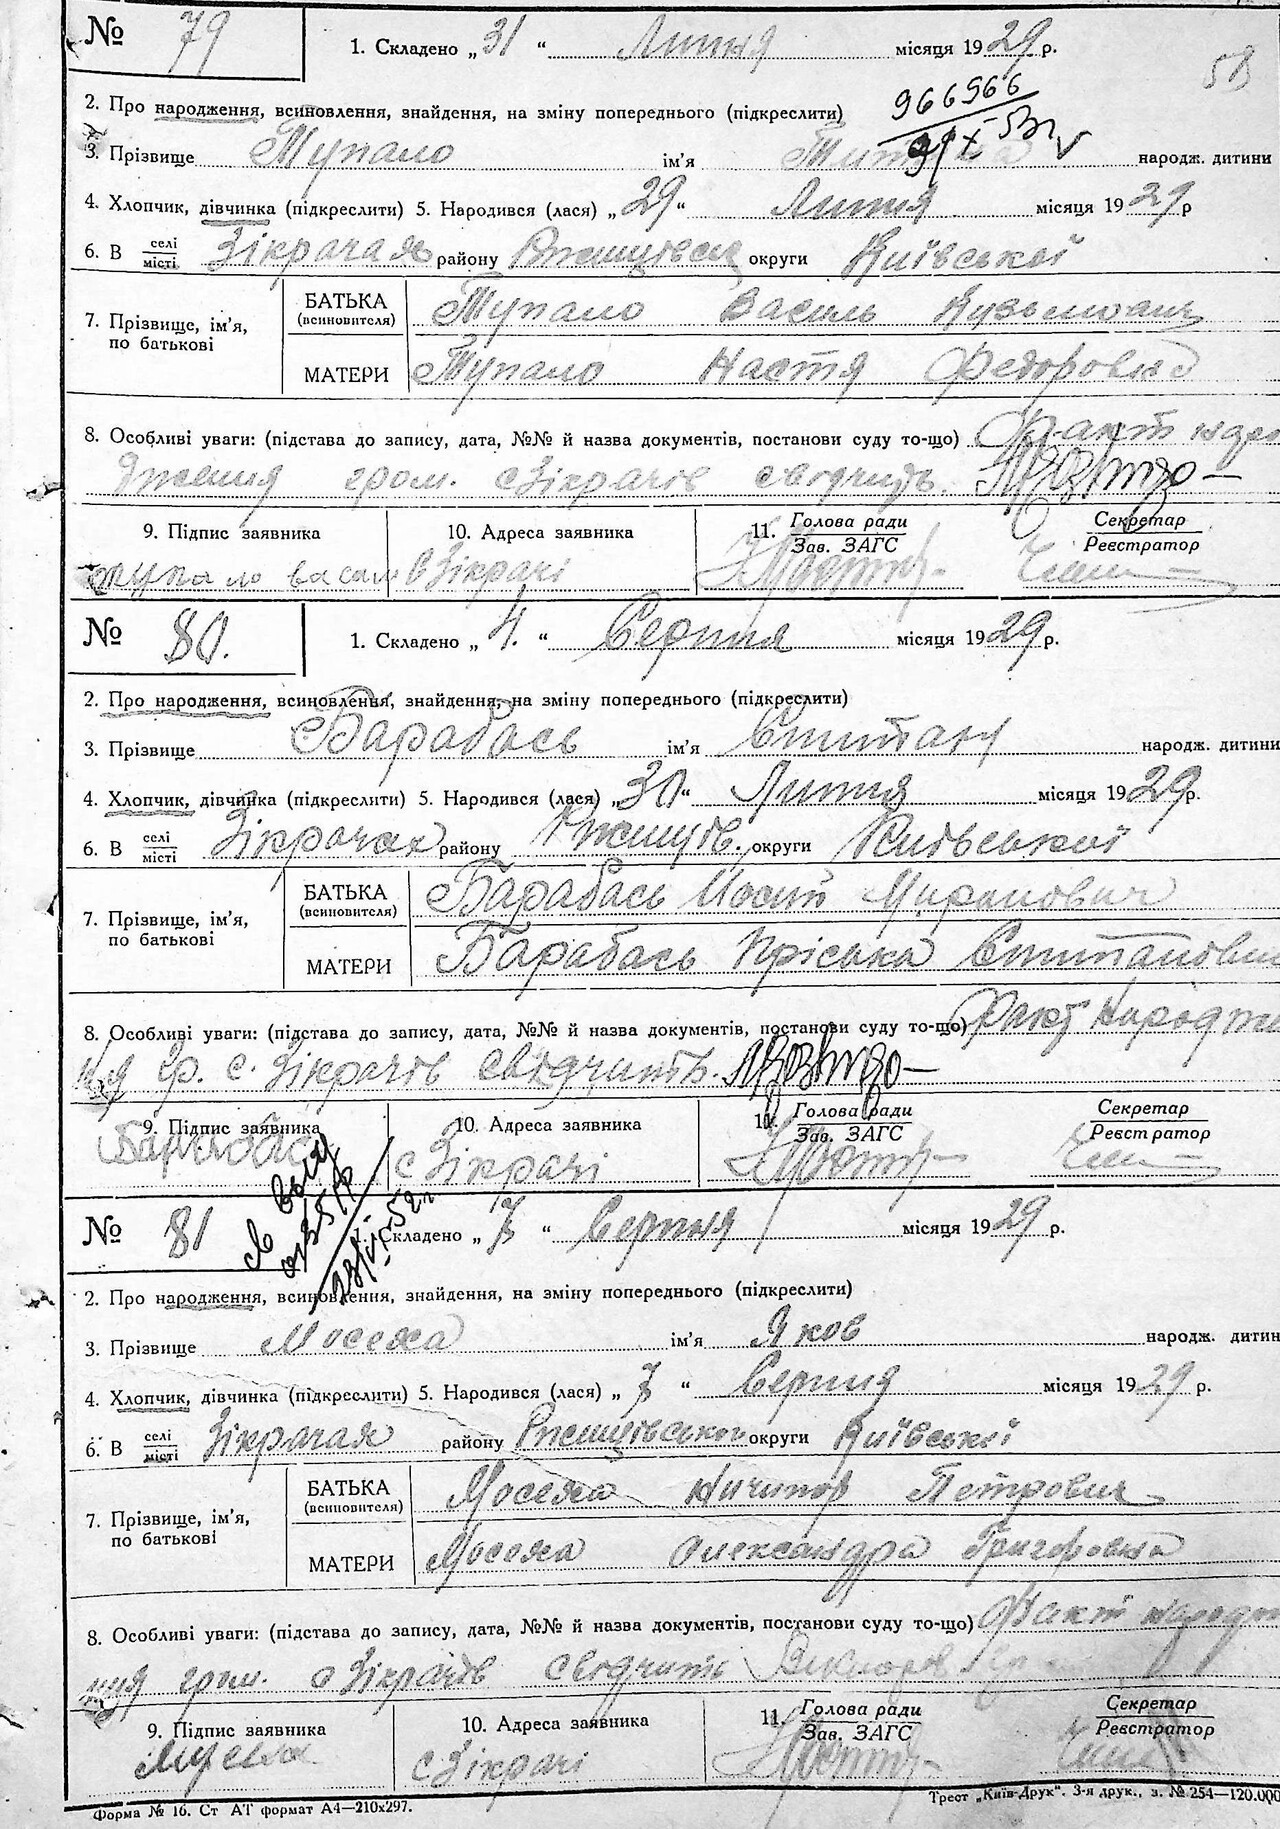 № 79
1. Складено „31“ Липня місяця 1929 р.
2. Про народження, всиновлення, знайдення, на зміну попереднього (підкреслити)
966966
3. Прізвище Тупало ім'я народж. дитини
4. Хлопчик, дівчинка (підкреслити) 5. Народився (лася) „29“ Липня місяця 1929 р
6. В селі/місті Зікрачах району округи Київської
7. Прізвище, ім'я, по батькові
БАТЬКА (всиновителя) Тупало Василь Кузьмович
МАТЕРИ Тупало Настя Федоровна
8. Особливі уваги: (підстава до запису, дата, №№ й назва документів, постанови суду то-що) Факт наро
дження гром. с Зікрачів свідчить
9. Підпис заявника
10. Адреса заявника
11. Голова ради / Зав. ЗАГС
Секретар / Реєстратор
тупало васил
с Зікрачі
№ 80.
1. Складено „4.“ Серпня місяця 1929 р.
2. Про народження, всиновлення, знайдення, на зміну попереднього (підкреслити)
3. Прізвище Барабась ім'я народж. дитини
4. Хлопчик, дівчинка (підкреслити) 5. Народився (лася) „30“ Липня місяця 1929 р.
6. В селі/місті Зікрачах району Ржищів. округи Київської
7. Прізвище, ім'я, по батькові
БАТЬКА (всиновителя) Барабась Йосип Миронович
МАТЕРИ Барабась Пріська
8. Особливі уваги: (підстава до запису, дата, №№ й назва документів, постанови суду то-що) Факт народже
ня гр. с. Зікрачів свідчить.
9. Підпис заявника
10. Адреса заявника
11. Голова ради / Зав. ЗАГС
Секретар / Реєстратор
Барабас
с Зікрачі
№ 81
1. Складено „7“ Серпня місяця 1929 р.
2. Про народження, всиновлення, знайдення, на зміну попереднього (підкреслити)
3. Прізвище Мосеха ім'я Яков народж. дитин
4. Хлопчик, дівчинка (підкреслити) 5. Народився (лася) „7“ Серпня місяця 1929 р.
6. В селі/місті Зікрачах району Ржищівської округи Київської
7. Прізвище, ім'я, по батькові
БАТЬКА (всиновителя) Мосеха Ничипор Петрович
МАТЕРИ Мосеха Олександра Григоровна
8. Особливі уваги: (підстава до запису, дата, №№ й назва документів, постанови суду то-що) Факт народже
ння гром. с Зікрачів свідчить
9. Підпис заявника
10. Адреса заявника
11. Голова ради / Зав. ЗАГС
Секретар / Реєстратор
с Зікрачі
Форма № 16. Ст АТ формат А4—210х297.
Трест „Київ-Друк“. 3-я друк., з. № 254—120.000